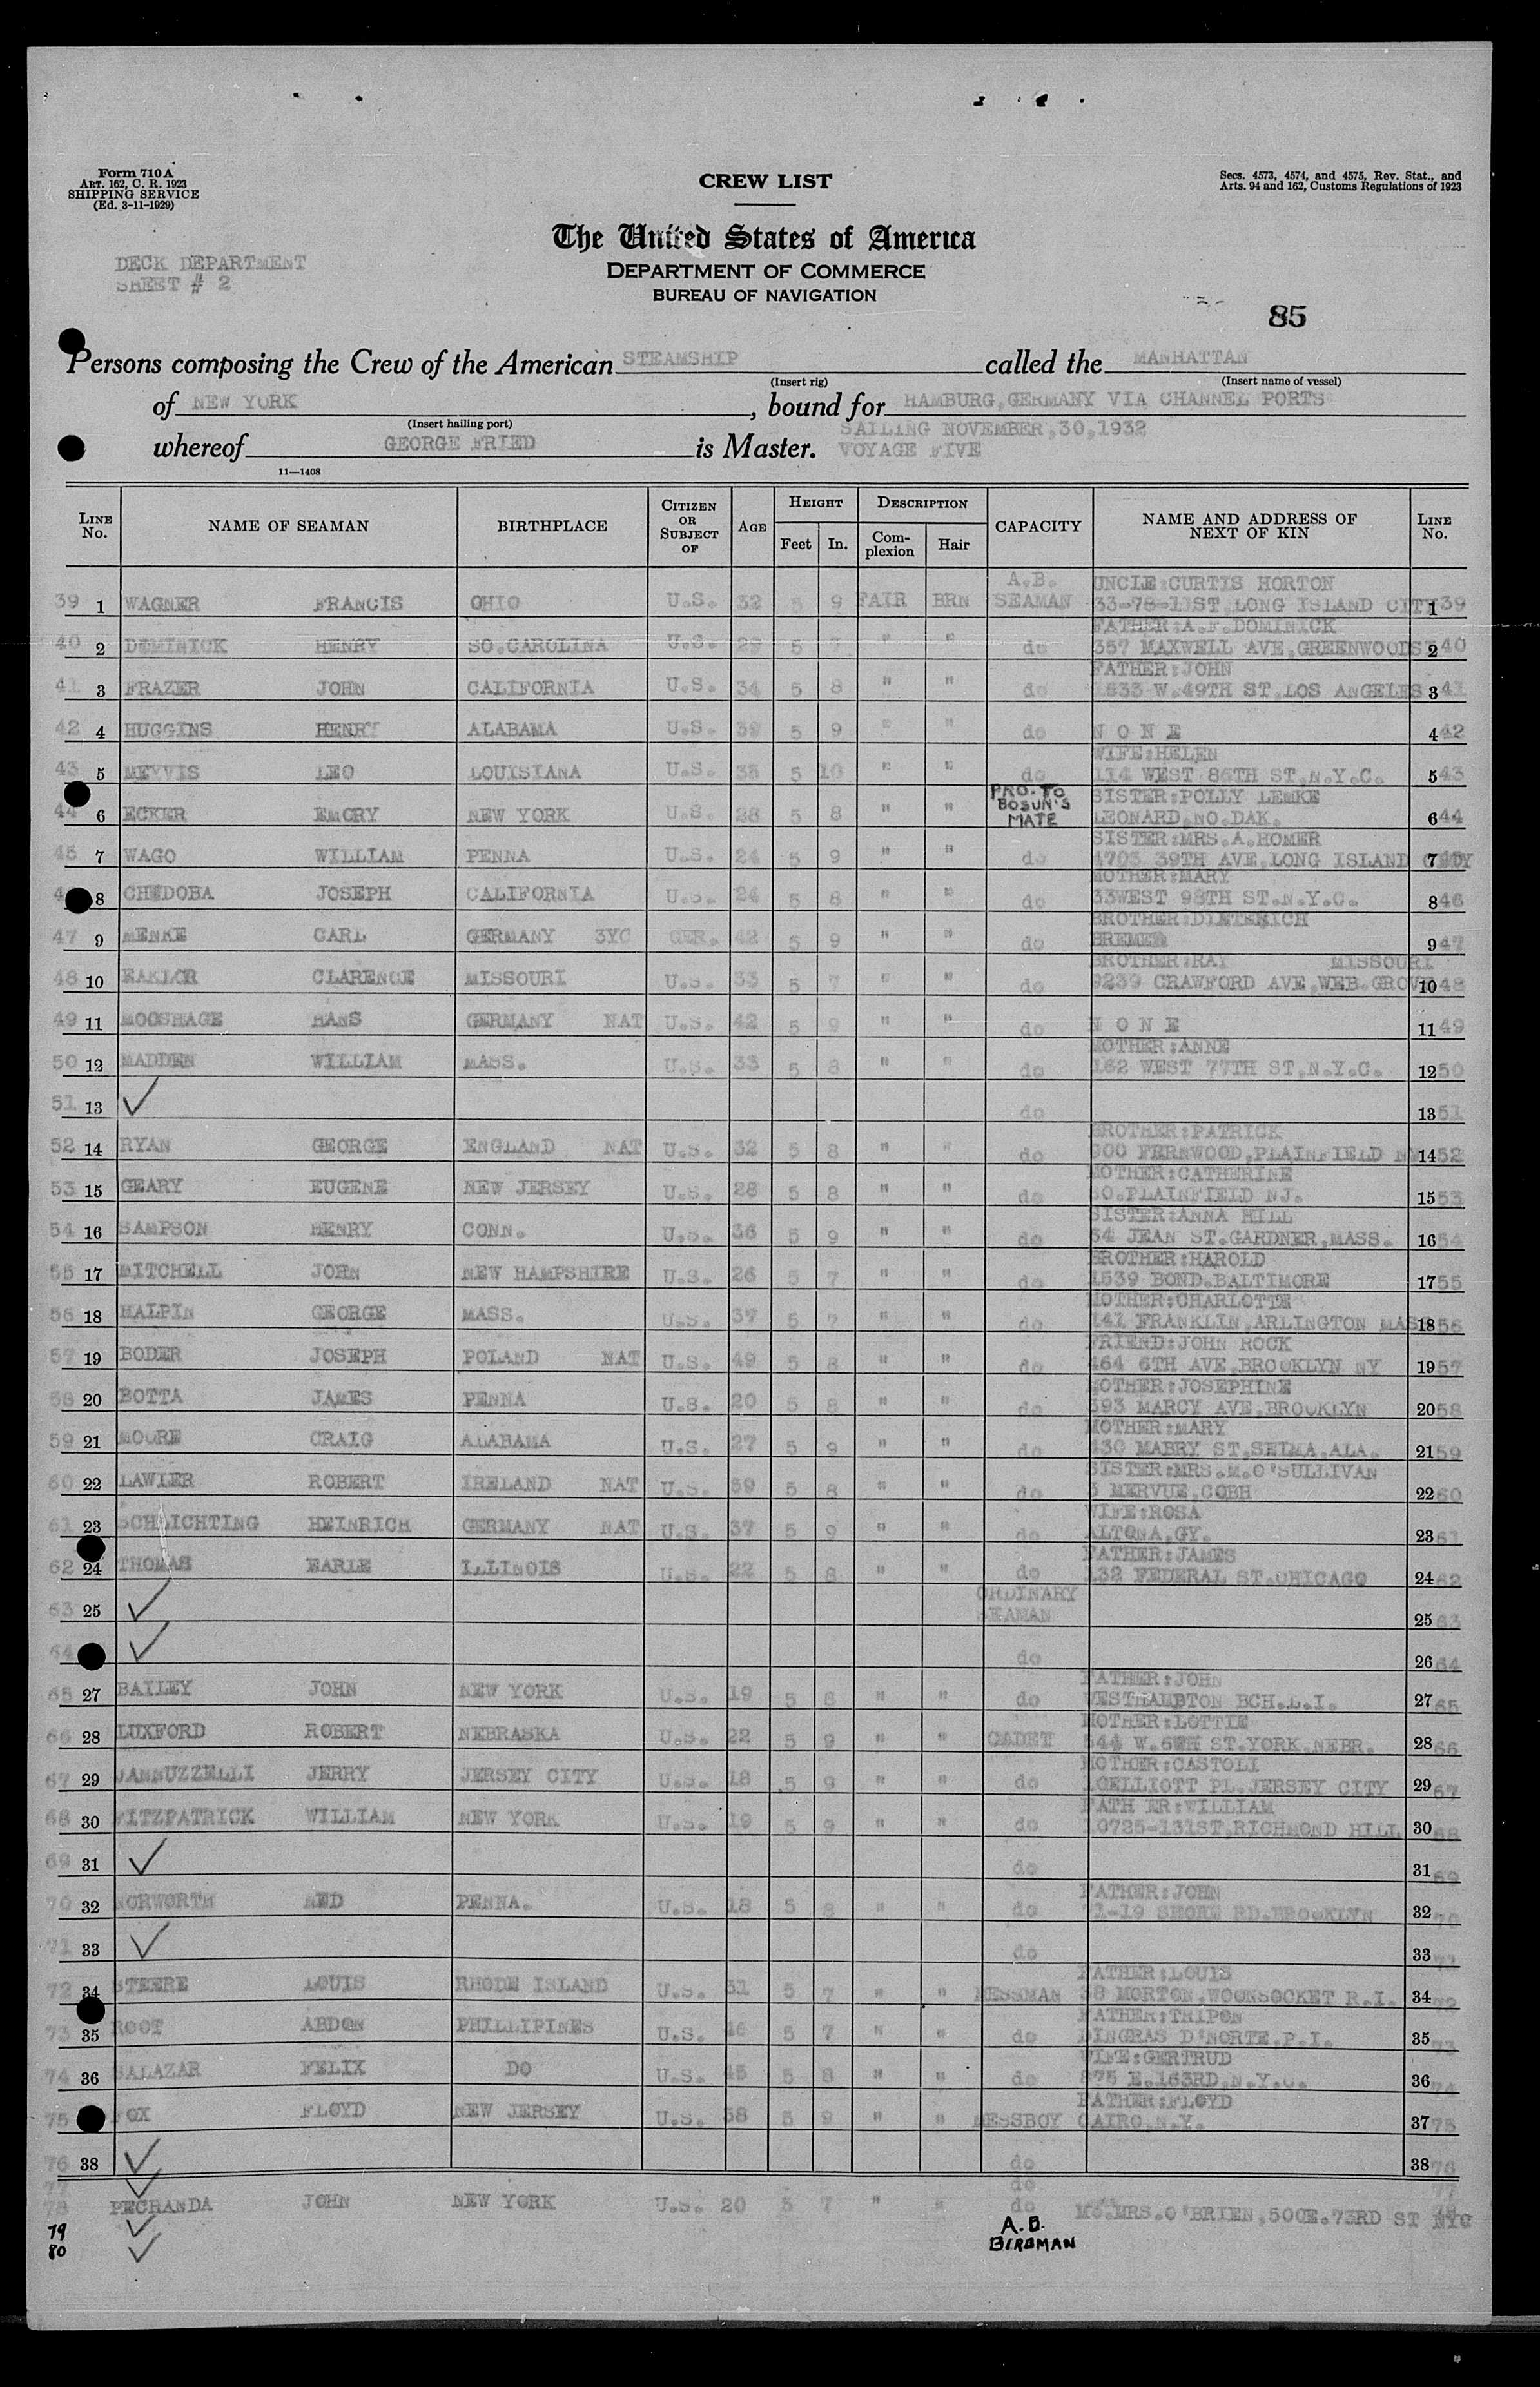 Form 710A
ART. 162, C. R. 1923
SHIPPING SERVICE
(Ed. 3-11-1929)
CREW LIST
Secs. 4573, 4574, and 4575, Rev. Stat., and
Arts. 94 and 162, Customs Regulations of 1923
The United States of America
DEPARTMENT OF COMMERCE
BUREAU OF NAVIGATION
DECK DEPARTMENT
SHEET # 2
85
Persons composing the Crew of the American STEAMSHIP called the MANHATTAN
(Insert rig) (Insert name of vessel)
of NEW YORK, bound for HAMBURG, GERMANY VIA CHANNEL PORTS
(Insert hailing port)
SAILING NOVEMBER, 30, 1932
whereof GEORGE FRIED is Master. VOYAGE FIVE
11—1408
LINE No. NAME OF SEAMAN BIRTHPLACE CITIZEN OR SUBJECT OF AGE HEIGHT Feet In. DESCRIPTION Complexion Hair CAPACITY NAME AND ADDRESS OF NEXT OF KIN LINE No.
A.B. UNCLE:CURTIS HORTON
39 1 WAGNER FRANCIS OHIO U.S. 32 5 9 FAIR BRN SEAMAN 33-78-11ST, LONG ISLAND CITY 1 39
FATHER:A.F.DOMINICK
40 2 DEMINICK HENRY SO.CAROLINA U.S. 29 5 7 " " do 357 MAXWELL AVE,GREENWOODS 2 40
FATHER:JOHN
41 3 FRAZER JOHN CALIFORNIA U.S. 34 5 8 " " do 1633 W.49TH ST,LOS ANGELES 3 41
42 4 HUGGINS HENRY ALABAMA U.S. 39 5 9 " " do N O N E 4 42
WIFE:HELEN
43 5 MEYVIS LEO LOUISIANA U.S. 35 5 10 " " do 114 WEST 86TH ST.N.Y.C. 5 43
PRO. TO BOSUN'S MATE SISTER:POLLY LEMKE
44 6 ECKER EMORY NEW YORK U.S. 28 5 8 " " LEONARD.NO.DAK. 6 44
SISTER:MRS.A.HOMER
45 7 WAGO WILLIAM PENNA U.S. 24 5 9 " " do 4703 39TH AVE,LONG ISLAND CITY 7
MOTHER:MARY
8 CHEDOBA JOSEPH CALIFORNIA U.S. 24 5 8 " " do 33WEST 98TH ST.N.Y.C. 8 46
BROTHER:DIETERICH
47 9 MENKE CARL GERMANY 3YC GER. 42 5 9 " " do BREMEN 9 47
BROTHER:RAY MISSOURI
48 10 CLARENCE MISSOURI U.S. 33 5 7 " " do 9239 CRAWFORD AVE,WEB.GROVE 10 48
49 11 MOOSHAGE HANS GERMANY NAT U.S. 42 5 9 " " do N O N E 11 49
MOTHER:ANNE
50 12 MADDEN WILLIAM MASS. U.S. 33 5 8 " " do 162 WEST 77TH ST,N.Y.C. 12 50
51 13 ✓ do 13 51
BROTHER:PATRICK
52 14 RYAN GEORGE ENGLAND NAT U.S. 32 5 8 " " do 300 FERNWOOD,PLAINFIELD 14 52
MOTHER:CATHERINE
53 15 GEARY EUGENE NEW JERSEY U.S. 28 5 8 " " do SO.PLAINFIELD NJ. 15 53
SISTER:ANNA HILL
54 16 SAMPSON HENRY CONN. U.S. 36 5 9 " " do 54 JEAN ST.GARDNER,MASS. 16 54
BROTHER:HAROLD
55 17 MITCHELL JOHN NEW HAMPSHIRE U.S. 26 5 7 " " do 1539 BOND.BALTIMORE 17 55
MOTHER:CHARLOTTE
56 18 HALPIN GEORGE MASS. U.S. 37 5 7 " " do 141 FRANKLIN,ARLINGTON MASS 18 56
FRIEND:JOHN ROCK
57 19 BODER JOSEPH POLAND NAT U.S. 49 5 8 " " do 464 6TH AVE,BROOKLYN NY 19 57
MOTHER:JOSEPHINE
58 20 BOTTA JAMES PENNA U.S. 20 5 8 " " do 393 MARCY AVE,BROOKLYN 20 58
MOTHER:MARY
59 21 MOORE CRAIG ALABAMA U.S. 27 5 9 " " do 430 MABRY ST,SELMA,ALA. 21 59
SISTER:MRS.M.O'SULLIVAN
60 22 LAWLER ROBERT IRELAND NAT U.S. 59 5 8 " " do 3 MERVUE,COBH 22 60
WIFE:ROSA
61 23 SCHLICHTING HEINRICH GERMANY NAT U.S. 37 5 9 " " do ALTONA,GY. 23 61
FATHER:JAMES
62 24 THOMAS EARLE ILLINOIS U.S. 22 5 8 " " do 132 FEDERAL ST.CHICAGO 24 62
63 25 ✓ ORDINARY SEAMAN 25 63
64 ✓ do 26 64
FATHER:JOHN
65 27 BAILEY JOHN NEW YORK U.S. 19 5 8 " " do WESTHAMBTON BCH.L.I. 27 65
MOTHER:LOTTIE
66 28 LUXFORD ROBERT NEBRASKA U.S. 22 5 9 " " CADET 544 W.6TH ST.YORK,NEBR. 28 66
MOTHER:CASTOLI
67 29 JANNUZZELLI JERRY JERSEY CITY U.S. 18 5 9 " " do ELLIOTT PL.JERSEY CITY 29 67
FATH ER:WILLIAM
68 30 FITZPATRICK WILLIAM NEW YORK U.S. 19 5 9 " " do 10725-131ST,RICHMOND HILL 30 68
69 31 ✓ do 31 69
FATHER:JOHN
70 32 NORWORTH NED PENNA. U.S. 18 5 8 " " do 71-19 SHORE RD.BROOKLYN 32 70
71 33 ✓ do 33 71
FATHER:LOUIS
72 34 STEERE LOUIS RHODE ISLAND U.S. 31 5 7 " " MESSMAN 38 MORTON,WOONSOCKET R.I. 34 72
FATHER:TRIPON
73 35 ROOT ABDON PHILLIPINES U.S. 46 5 7 " " do DINGRAS D'NORTE.P.I. 35 73
WIFE:GERTRUD
74 36 SALAZAR FELIX DO U.S. 45 5 8 " " do 875 E.163RD.N.Y.C. 36 74
FATHER:FLOYD
75 FOX FLOYD NEW JERSEY U.S. 38 5 9 " " MESSBOY CAIRO,N.Y. 37 75
76 38 ✓ do 38 76
77 ✓ do 77
78 PECHANDA JOHN NEW YORK U.S. 20 5 7 " " do MO.MRS.O'BRIEN,500E.73RD ST NYC
79 ✓ A.B.
80 ✓ BIRDMAN